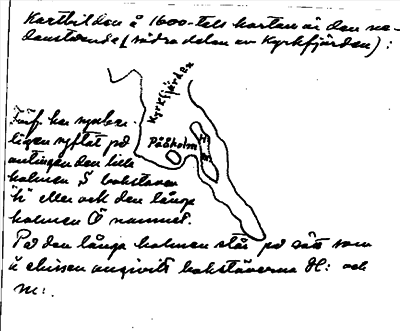 Kartbilden å 1600-tals kartan är den ne-
danstående (södra delen av Kyrkfjärden):
Kyrkfjärden
Påsholm
H
M
Förf. har synbar-
ligen syftat på
antingen den lilla
holmen S bokstaven
"h" eller ock den långa
holmen Ö namnet.
På den långa holmen står på sätt som
å skissen angivits bokstäverna H: och
M:.